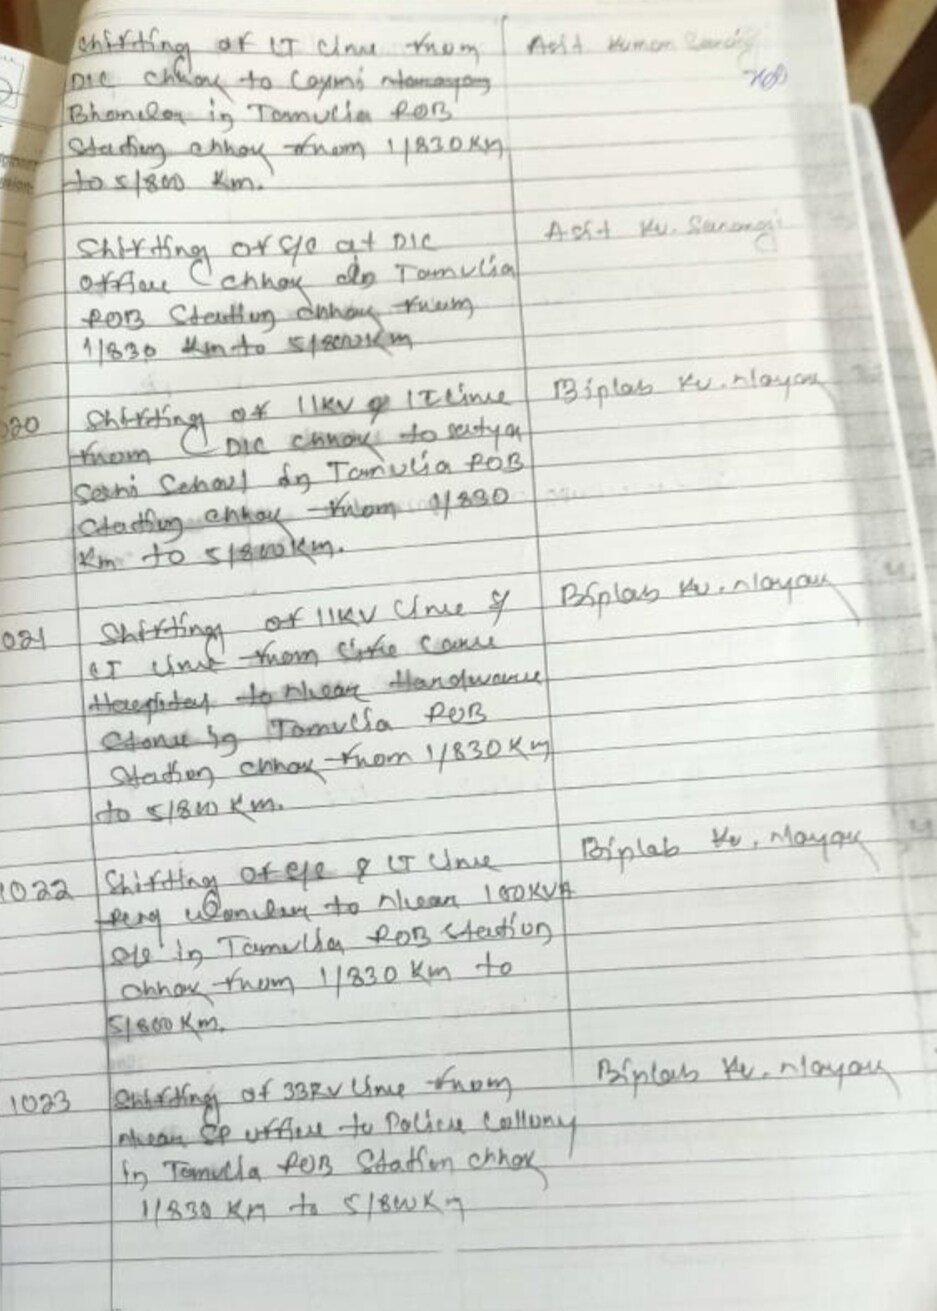 Shifting of LT Line from Asit Kumar
DIC Chhak to Laxmi Narayan
in Tamulia ROB
Station chhak from 1/830 Km
to 5/800 Km.
Shifting of S/S at DIC Asit Ku. Sarangi
office chhak in Tamulia
ROB Station chhak from
1/830 Km to 5/800 Km
020 Shifting of 11KV & LT Line Biplab Ku. Nayak
from DIC chhak to satya
School in Tamulia ROB
Station chhak from 1/830
Km to 5/800 Km.
021 Shifting of 11KV Line & Biplab Ku. Nayak
LT Line from Life Care
Hospital to Near Hardware
Store in Tamulia ROB
Station chhak from 1/830 Km
to 5/800 Km.
1022 Shifting of S/S & LT Line Biplab Ku. Nayak
to Near 100KVA
S/S in Tamulia ROB Station
chhak from 1/830 Km to
5/800 Km.
1023 Shifting of 33KV Line from Biplab Ku. Nayak
Near SP office to Police Collony
in Tamulia ROB Station chhak
1/830 Km to 5/800 Km